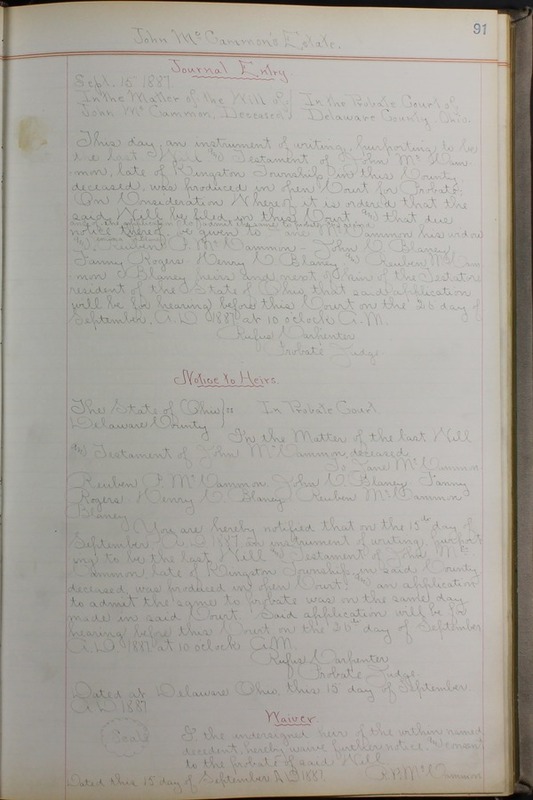 91
John McCammon's Estate.
Journal Entry
Sept. 15 1887
In the Matter of the Will of In the Probate Court of
John McCammon, Deceased Delaware County, Ohio.
This day, an instrument of writing, purporting to be
the last Will & Testament of John McCam-
mon, late of Kingston Township in this County
deceased, was produced in open Court for Probate.
On Consideration Whereof it is ordered that the
said Will be filed in this Court, & that due
notice thereof be given to Jane McCammon his widow
& Reuben P. McCammon - John C. Blaney
Fanny Rogers Henry C. Blaney & Reuben McCam-
mon Blaney heirs and next of kin of the Testator
resident of the State of Ohio, that said application
will be for hearing before this Court on the 26 day of
September, A.D. 1887 at 10 oclock A.M.
Rufus Carpenter
Probate Judge
Notice to Heirs.
The State of Ohio ss In Probate Court
Delaware County
In the Matter of the last Will
& Testament of John McCammon, deceased
To Jane McCammon
Reuben P. McCammon, John C. Blaney Fanny
Rogers Henry C. Blaney Reuben McCammon
Blaney
You are hereby notified that on the 15th day of
September A.D. 1887 an instrument of writing, purport
ing to be the last Will & Testament of John Mc
Cammon late of Kingston Township in said County
deceased, was produced in open Court & an application
to admit the same to probate was on the same day
made in said Court. Said application will be for
hearing before this Court on the 26th day of September
A.D. 1887 at 10 oclock A.M.
Rufus Carpenter
Probate Judge
Dated at Delaware Ohio, this 15 day of September
A.D. 1887
Waiver
Seal I, the undersigned heir of the within named
decedent, hereby waive further notice, & consent
to the probate of said Will
Dated this 15 day of September A.D. 1887. R.P. McCammon